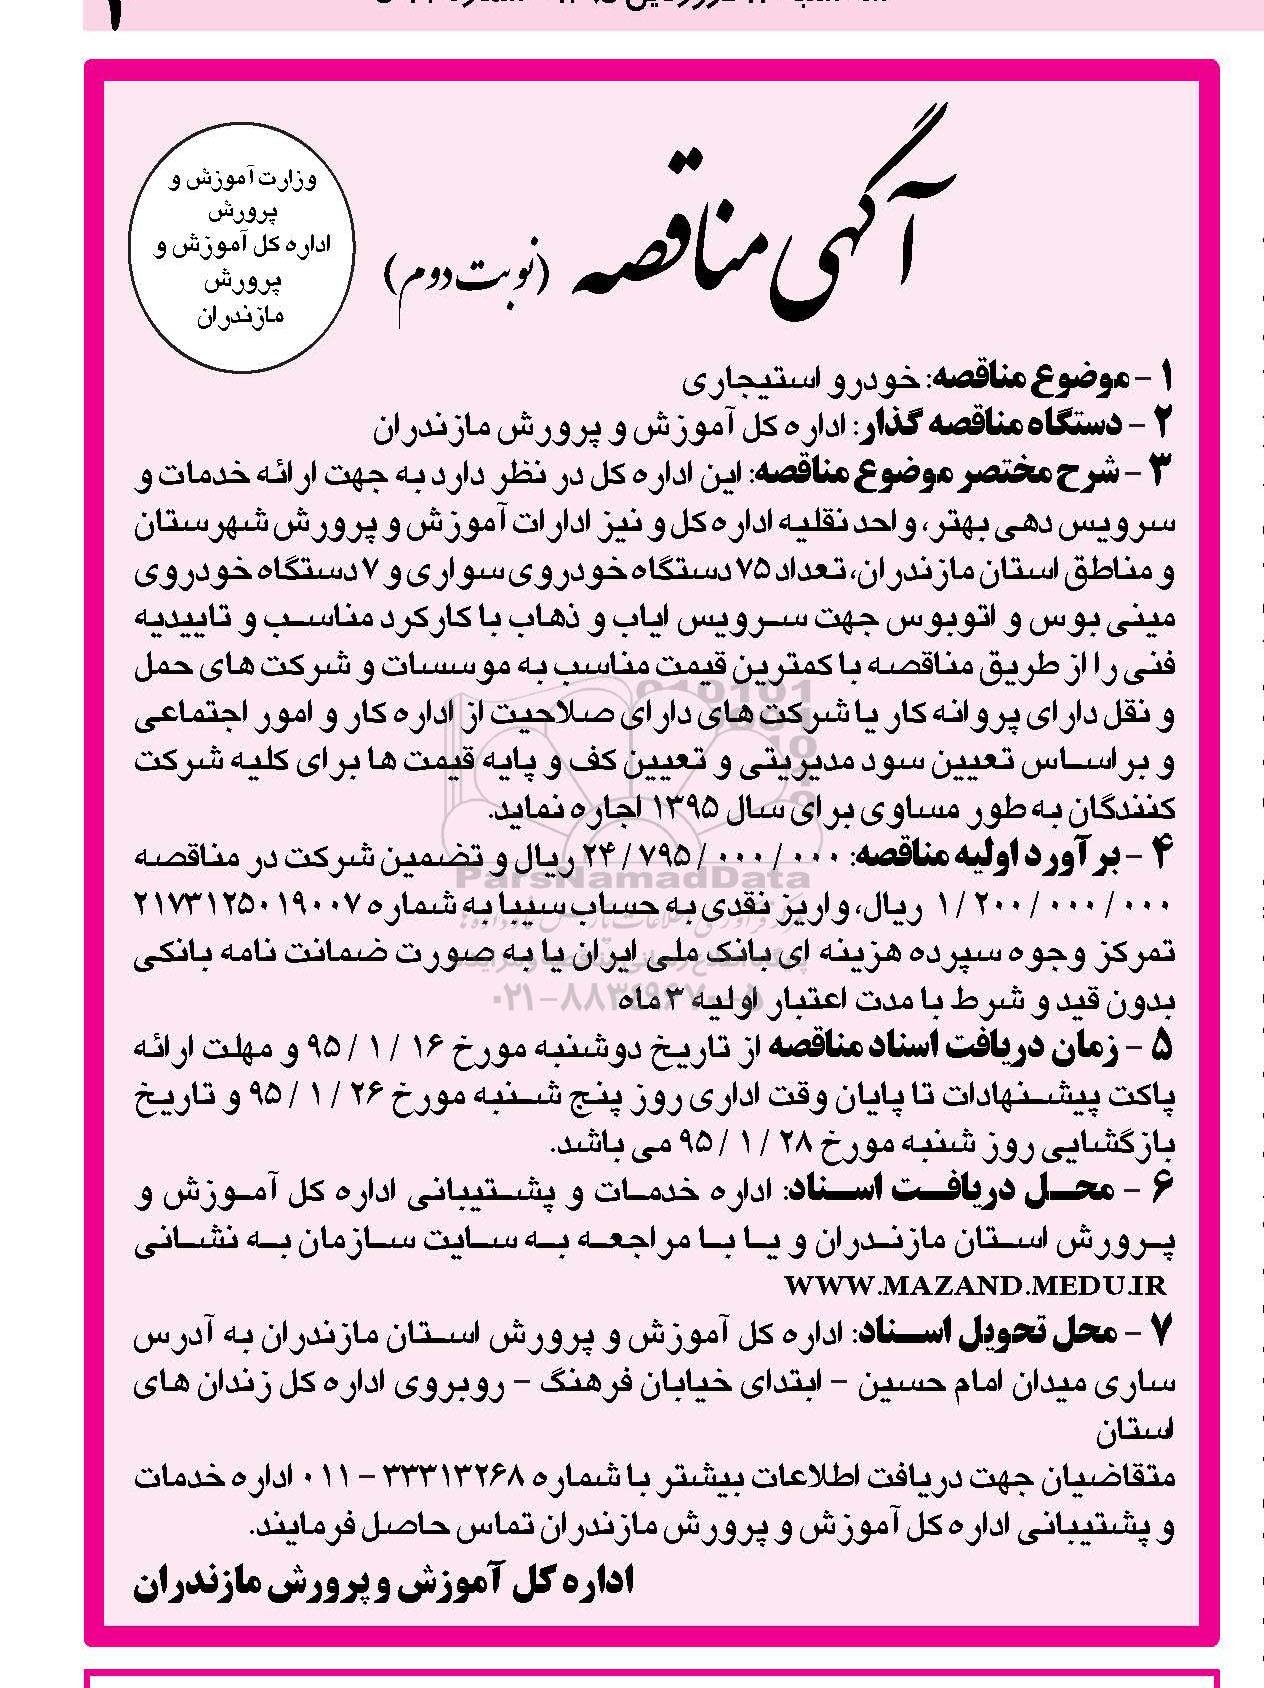 آگهی مناقصه (نوبت دوم)
وزارت آموزش و
پرورش
اداره کل آموزش و
پرورش
مازندران
۱ - موضوع مناقصه: خودرو استیجاری
۲ - دستگاه مناقصه گذار: اداره کل آموزش و پرورش مازندران
۳ - شرح مختصر موضوع مناقصه: این اداره کل در نظر دارد به جهت ارائه خدمات و
سرویس دهی بهتر، واحد نقلیه اداره کل و نیز ادارات آموزش و پرورش شهرستان
و مناطق استان مازندران، تعداد ۷۵ دستگاه خودروی سواری و ۷ دستگاه خودروی
مینی بوس و اتوبوس جهت سرویس ایاب و ذهاب با کارکرد مناسب و تاییدیه
فنی را از طریق مناقصه با کمترین قیمت مناسب به موسسات و شرکت های حمل
و نقل دارای پروانه کار یا شرکت های دارای صلاحیت از اداره کار و امور اجتماعی
و بر اساس تعیین سود مدیریتی و تعیین کف و پایه قیمت ها برای کلیه شرکت
کنندگان به طور مساوی برای سال ۱۳۹۵ اجاره نماید.
۴ - برآورد اولیه مناقصه: ۲۴/۷۹۵/۰۰۰/۰۰۰ ریال و تضمین شرکت در مناقصه
۱/۲۰۰/۰۰۰/۰۰۰ ریال، واریز نقدی به حساب سیبا به شماره ۲۱۷۳۱۲۵۰۱۹۰۰۷
تمرکز وجوه سپرده هزینه ای بانک ملی ایران یا به صورت ضمانت نامه بانکی
بدون قید و شرط با مدت اعتبار اولیه ۳ ماه
۵ - زمان دریافت اسناد مناقصه از تاریخ دوشنبه مورخ ۹۵/۱/۱۶ و مهلت ارائه
پاکت پیشنهادات تا پایان وقت اداری روز پنج شنبه مورخ ۹۵/۱/۲۶ و تاریخ
بازگشایی روز شنبه مورخ ۹۵/۱/۲۸ می باشد.
۶ - محل دریافت اسناد: اداره خدمات و پشتیبانی اداره کل آموزش و
پرورش استان مازندران و یا با مراجعه به سایت سازمان به نشانی
WWW.MAZAND.MEDU.IR
۷ - محل تحویل اسناد: اداره کل آموزش و پرورش استان مازندران به آدرس
ساری میدان امام حسین - ابتدای خیابان فرهنگ - روبروی اداره کل زندان های
استان
متقاضیان جهت دریافت اطلاعات بیشتر با شماره ۳۳۳۱۳۲۶۸ - ۰۱۱ اداره خدمات
و پشتیبانی اداره کل آموزش و پرورش مازندران تماس حاصل فرمایند.
اداره کل آموزش و پرورش مازندران
ParsNamadData
۰۲۱-۸۸۳۴۹۶۷۰-۵